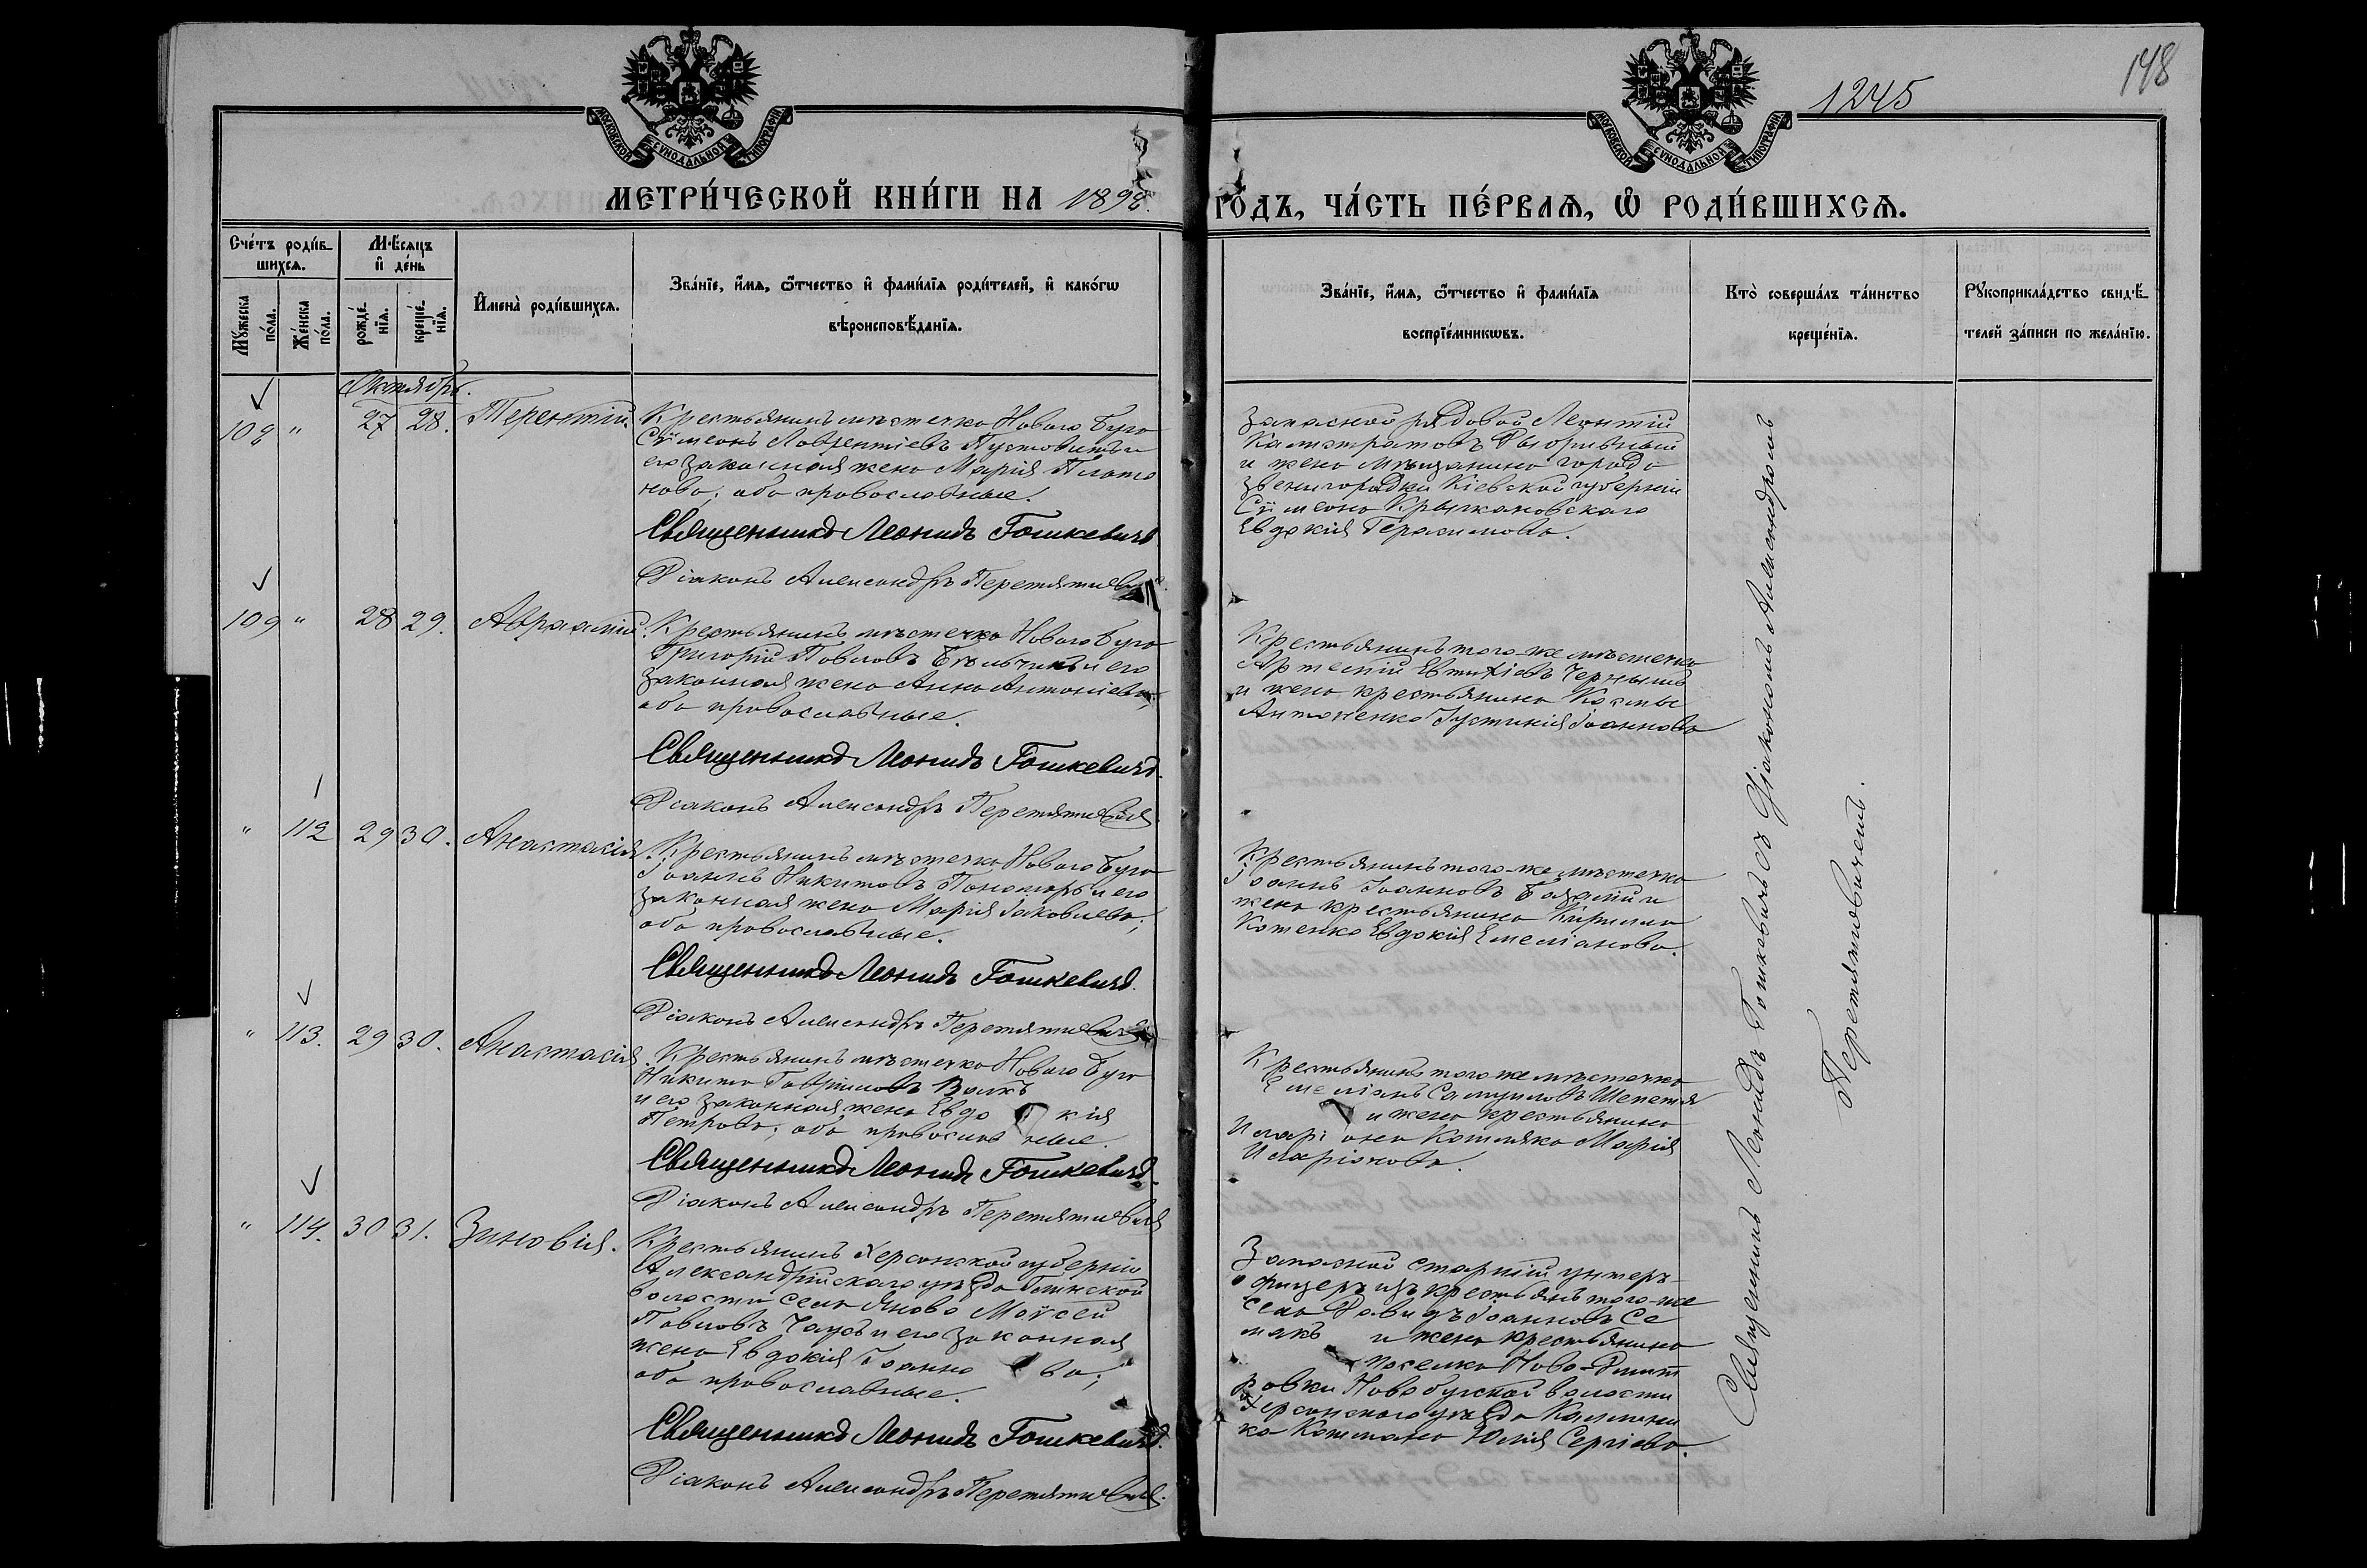 1245
148
МОСКОВСКОЙ СУНОДАЛЬНОЙ ТИПОГРАФІИ
МОСКОВСКОЙ СУНОДАЛЬНОЙ ТИПОГРАФІИ
МЕТРИ́ЧЕСКОЙ КНИ́ГИ НА 1898
ГО́ДЪ, ЧА́СТЬ ПЕ́РВАѦ, Ѡ РОДИ́ВШИХСѦ.
Сче́тъ роди́в-
шихсѧ.
Мꙋ́жеска по́ла.
Же́нска по́ла.
Мѣ́сѧцъ
и҆ де́нь
рожде́нїѧ.
креще́нїѧ.
И҆мена̀ роди́вшихсѧ.
Зва́нїе, и҆́мѧ, ѻ҆́тчество и҆ фами́лїѧ роди́телей, и҆ како́гѡ
вѣроисповѣ́данїѧ.
Зва́нїе, и҆́мѧ, ѻ҆́тчество и҆ фами́лїѧ
воспрїе́мникѡвъ.
Кто̀ соверша́лъ та́инство
креще́нїѧ.
Рꙋкоприкла́дство свидѣ́-
телей за́писи по жела́нїю.
Октябрь.
108 " 27 28. Терентій
Крестьянинъ мѣстечка Новаго Буга
Сѵмеонъ Лаврентіевъ Пустовитъ и
его законная жена Марія Плато
нова; оба православные.
Священникъ Леонидъ Гошкевичъ
Діаконъ Александръ Перетятковичъ
Запасной рядовой Леонтій
Калистратовъ
и жена мѣщанина города
Звенигородки Кіевской губерніи
Сѵмеона Крыжановскаго
Евдокія Герасимова.
109 " 28 29. Авраамій
Крестьянинъ мѣстечка Новаго Буга
Григорій Павловъ Бѣльчикъ и его
законная жена Анна Антоніева;
оба православные.
Священникъ Леонидъ Гошкевичъ.
Діаконъ Александръ Перетятковичъ
Крестьянинъ того-же мѣстечка
Артемій Евтихіевъ Чернышъ
и жена крестьянина Космы
Антоненко Іустинія Іоаннова
" 112 29 30. Анастасія
Крестьянинъ мѣстечка Новаго Буга
Іоаннъ Никитовъ Пономарь и его
законная жена Марія Іаковлева;
оба православные.
Священникъ Леонидъ Гошкевичъ.
Діаконъ Александръ Перетятковичъ
Крестьянинъ того-же мѣстечка
Іоаннъ Іоанновъ и
жена крестьянина Кирилла
Котенко Евдокія Емеліанова.
" 113. 29 30. Анастасія
Крестьянинъ мѣстечка Новаго Буга
Никита Гавріиловъ Волкъ
и его законная жена Евдо кія
Петрова; оба православ ные.
Священникъ Леонидъ Гошкевичъ.
Діаконъ Александръ Перетятковичъ
Крестьянинъ того же мѣстечка
Емеліанъ Самуиловъ Шепетя
и жена крестьянина
Иларі она Котляка Марія
Иларіонова.
" 114. 30 31. Зиновія.
Крестьянинъ Херсонской губерніи
Александрійскаго уѣзда Глинской
волости села Янова Моѵсей
Павловъ Чаусъ и его законная
жена Евдокія Іоанно ва;
оба православные.
Священникъ Леонидъ Гошкевичъ.
Діаконъ Александръ Перетятковичъ.
Запасной старшій унтеръ-
офицеръ изъ крестьянъ того-же
села Давидъ Іоанновъ Се
макъ и жена крестьянина
поселка Ново-Дмит
ровки Новобугской волости
Херсонскаго уѣзда Каллини
ка Котмана Юлія Сергіева.
Священникъ Леонидъ Гошкевичъ съ Діакономъ Александромъ
Перетятковичемъ.